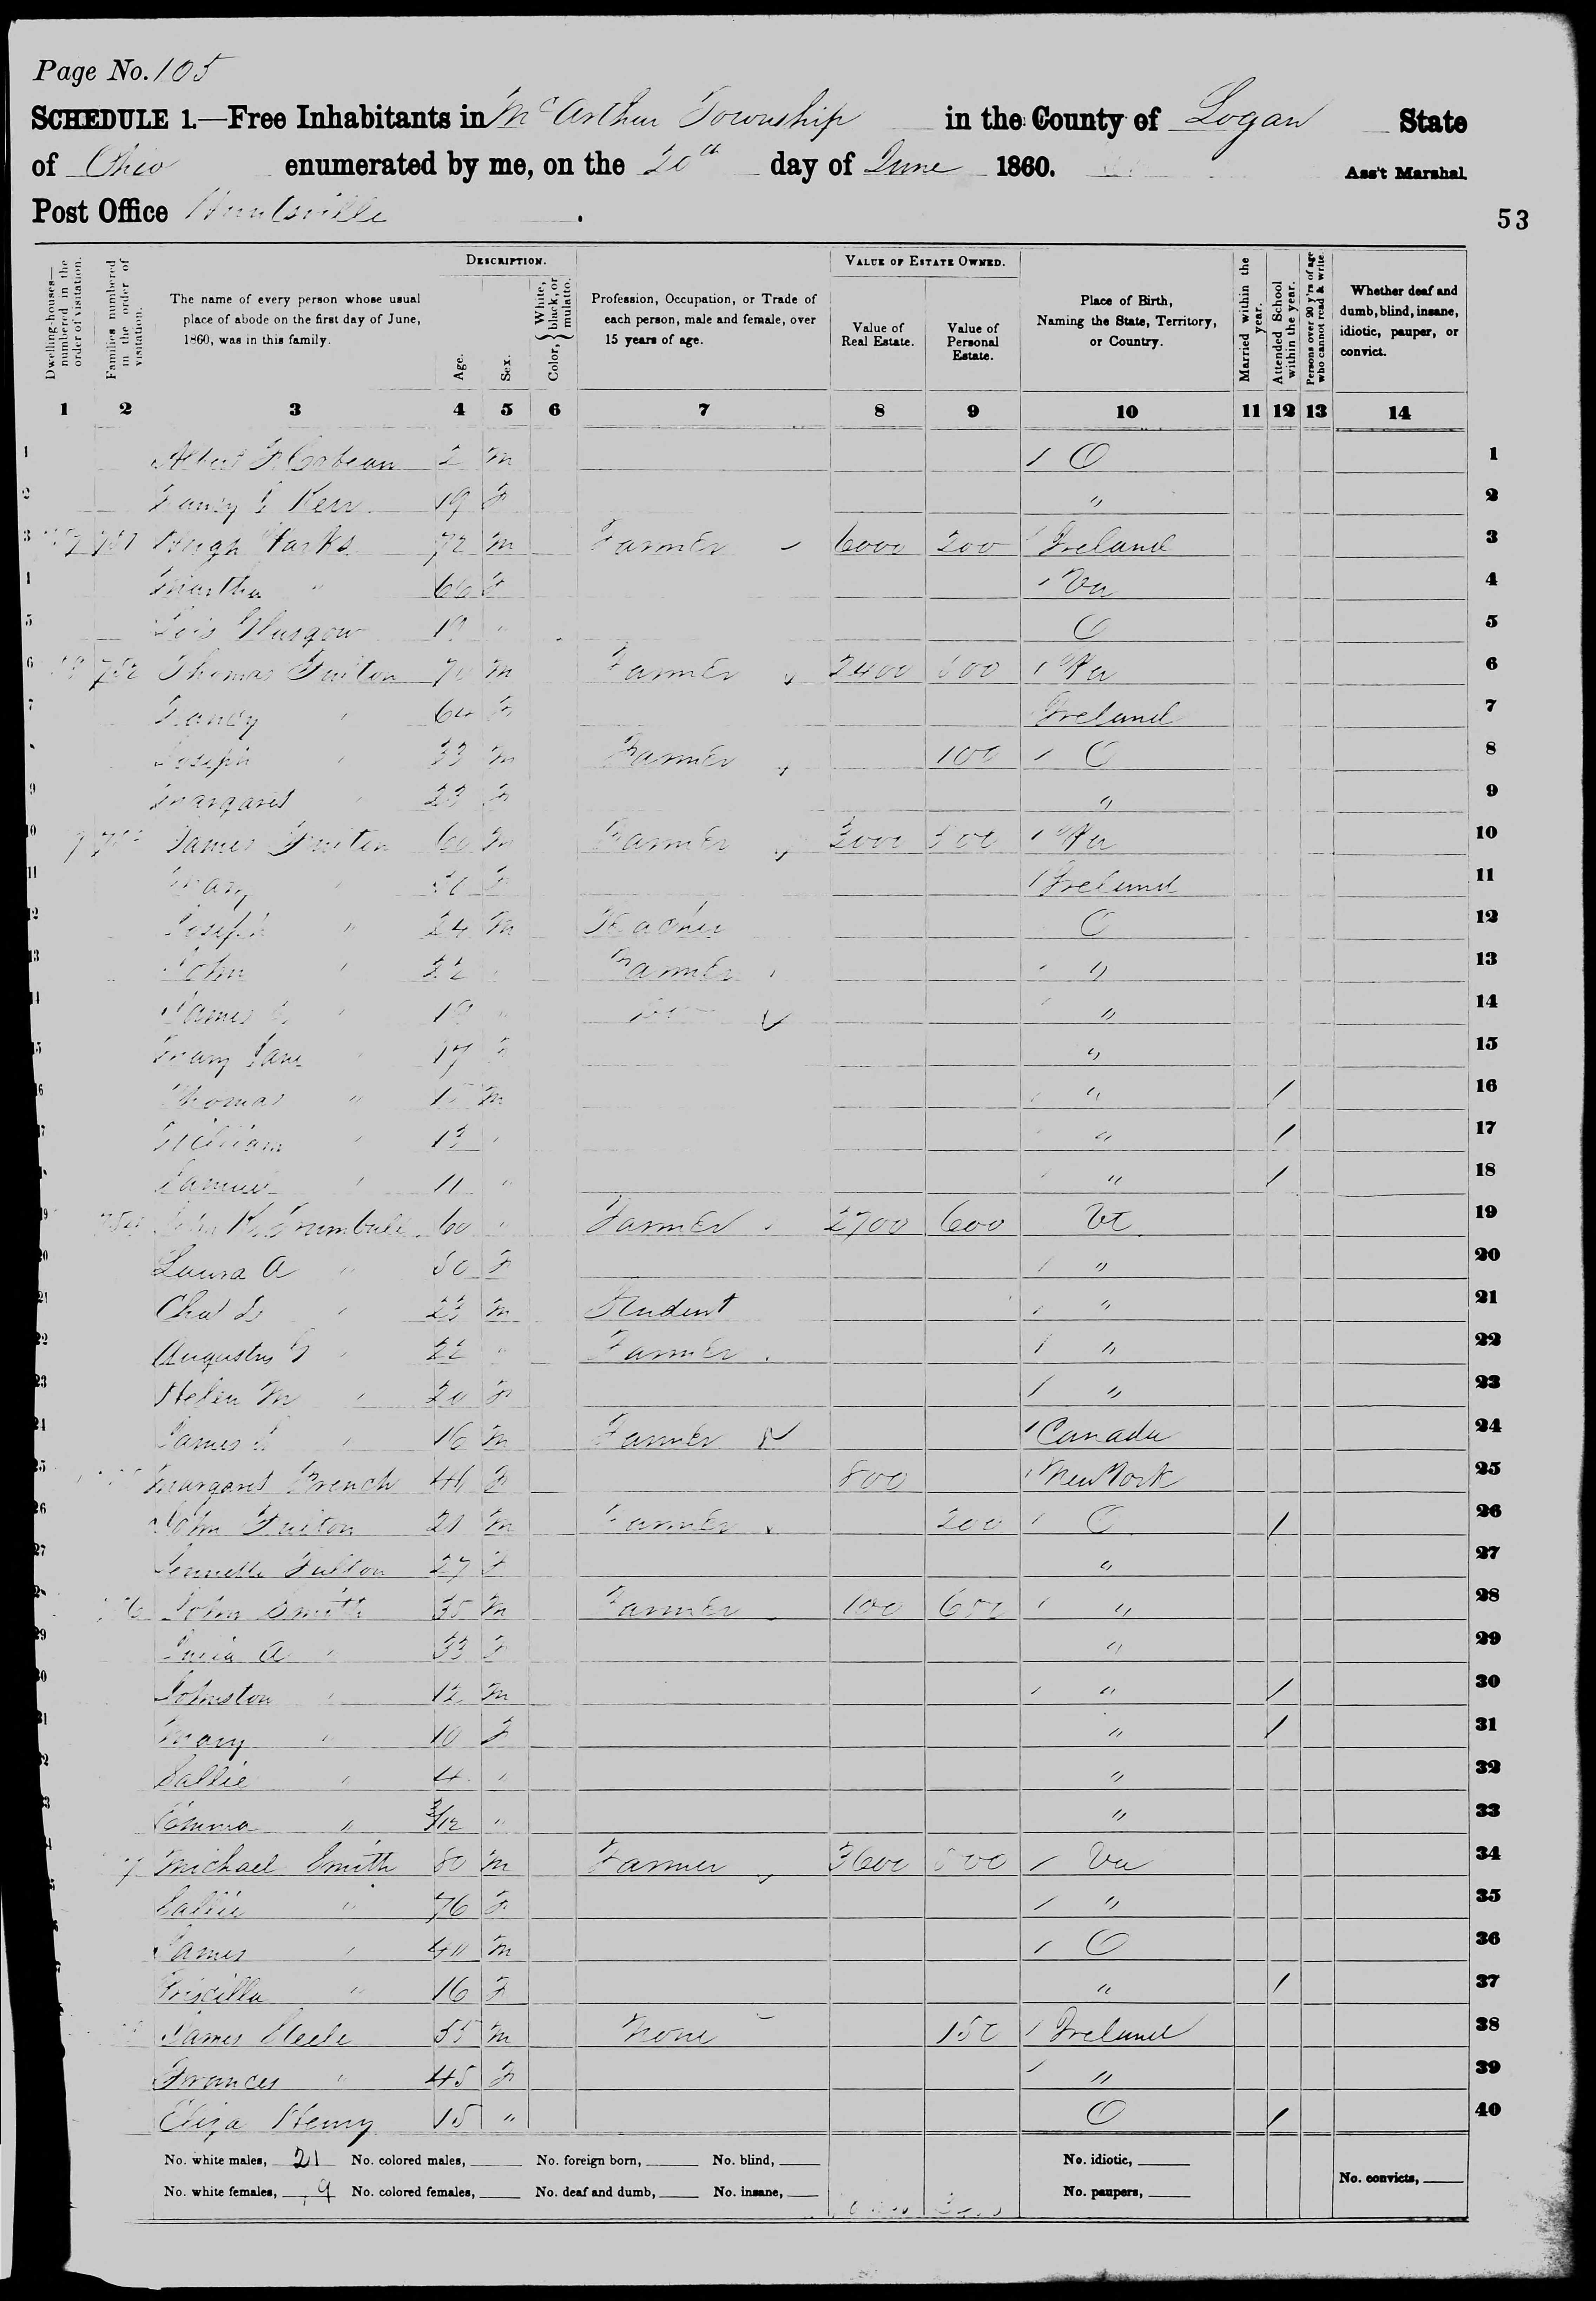 Page No. 105
SCHEDULE 1.—Free Inhabitants in McArthur Township in the County of Logan State
of Ohio enumerated by me, on the 20th day of June 1860. Ass't Marshal.
Post Office Huntsville
53
Dwelling-houses—numbered in the order of visitation. Families numbered in the order of visitation. The name of every person whose usual place of abode on the first day of June, 1860, was in this family. DESCRIPTION. Age. Sex. Color, { White, black, or mulatto. Profession, Occupation, or Trade of each person, male and female, over 15 years of age. VALUE OF ESTATE OWNED. Value of Real Estate. Value of Personal Estate. Place of Birth, Naming the State, Territory, or Country. Married within the year. Attended School within the year. Persons over 20 y'rs of age who cannot read & write. Whether deaf and dumb, blind, insane, idiotic, pauper, or convict.
1 2 3 4 5 6 7 8 9 10 11 12 13 14
1 Albert 2 m / O 1
2 Nancy Kerr 19 F " 2
3 Hugh Parks 72 m Farmer 6000 200 / Ireland 3
Martha " 66 F / Va 4
5 Lois Glasgow 19 " O 5
6 752 Thomas Fulton 70 m Farmer 2400 / Pa 6
7 Nancy " 64 F Ireland 7
Joseph " 33 m Farmer 100 / O 8
9 Margaret " 23 F " 9
10 James Fulton 60 m Farmer 3000 500 / Pa 10
11 Mary " F / Ireland 11
12 Joseph " 24 m Teacher O 12
13 John " 22 " Farmer / " 13
14 James " 19 " / " 14
15 Mary Jane " 17 F " 15
16 Thomas " 15 m / " / 16
17 William " 13 " / " / 17
Samuel " 11 " / " / 18
19 John Trumbull 60 " Farmer 2700 600 Vt 19
20 Laura A " 50 F / " 20
21 Chas " 23 m Student / " 21
22 Augustus " 22 " Farmer / " 22
23 Helen M " 20 F / " 23
24 James " 16 m Farmer / Canada 24
25 Margaret French 44 F 800 / New York 25
26 John Fulton 21 m Farmer 200 / O / 26
27 Fulton 27 F " 27
John Smith 35 m Farmer 100 650 / " 28
29 A " 33 F " 29
30 Johnston " 12 m / " / 30
31 Mary " 10 F " / 31
Sallie " 4 " " 32
Emma " 3/12 " " 33
Michael Smith 80 m Farmer 3600 / Va 34
Sallie " 76 F / " 35
James " 40 m / O 36
Priscilla " 16 F " / 37
James Steele 55 m None 150 / Ireland 38
Frances " 45 F / " 39
Eliza Henry 15 " O / 40
No. white males, 21 No. colored males, No. foreign born, No. blind, No. idiotic, No. convicts,
No. white females, 19 No. colored females, No. deaf and dumb, No. insane, No. paupers,